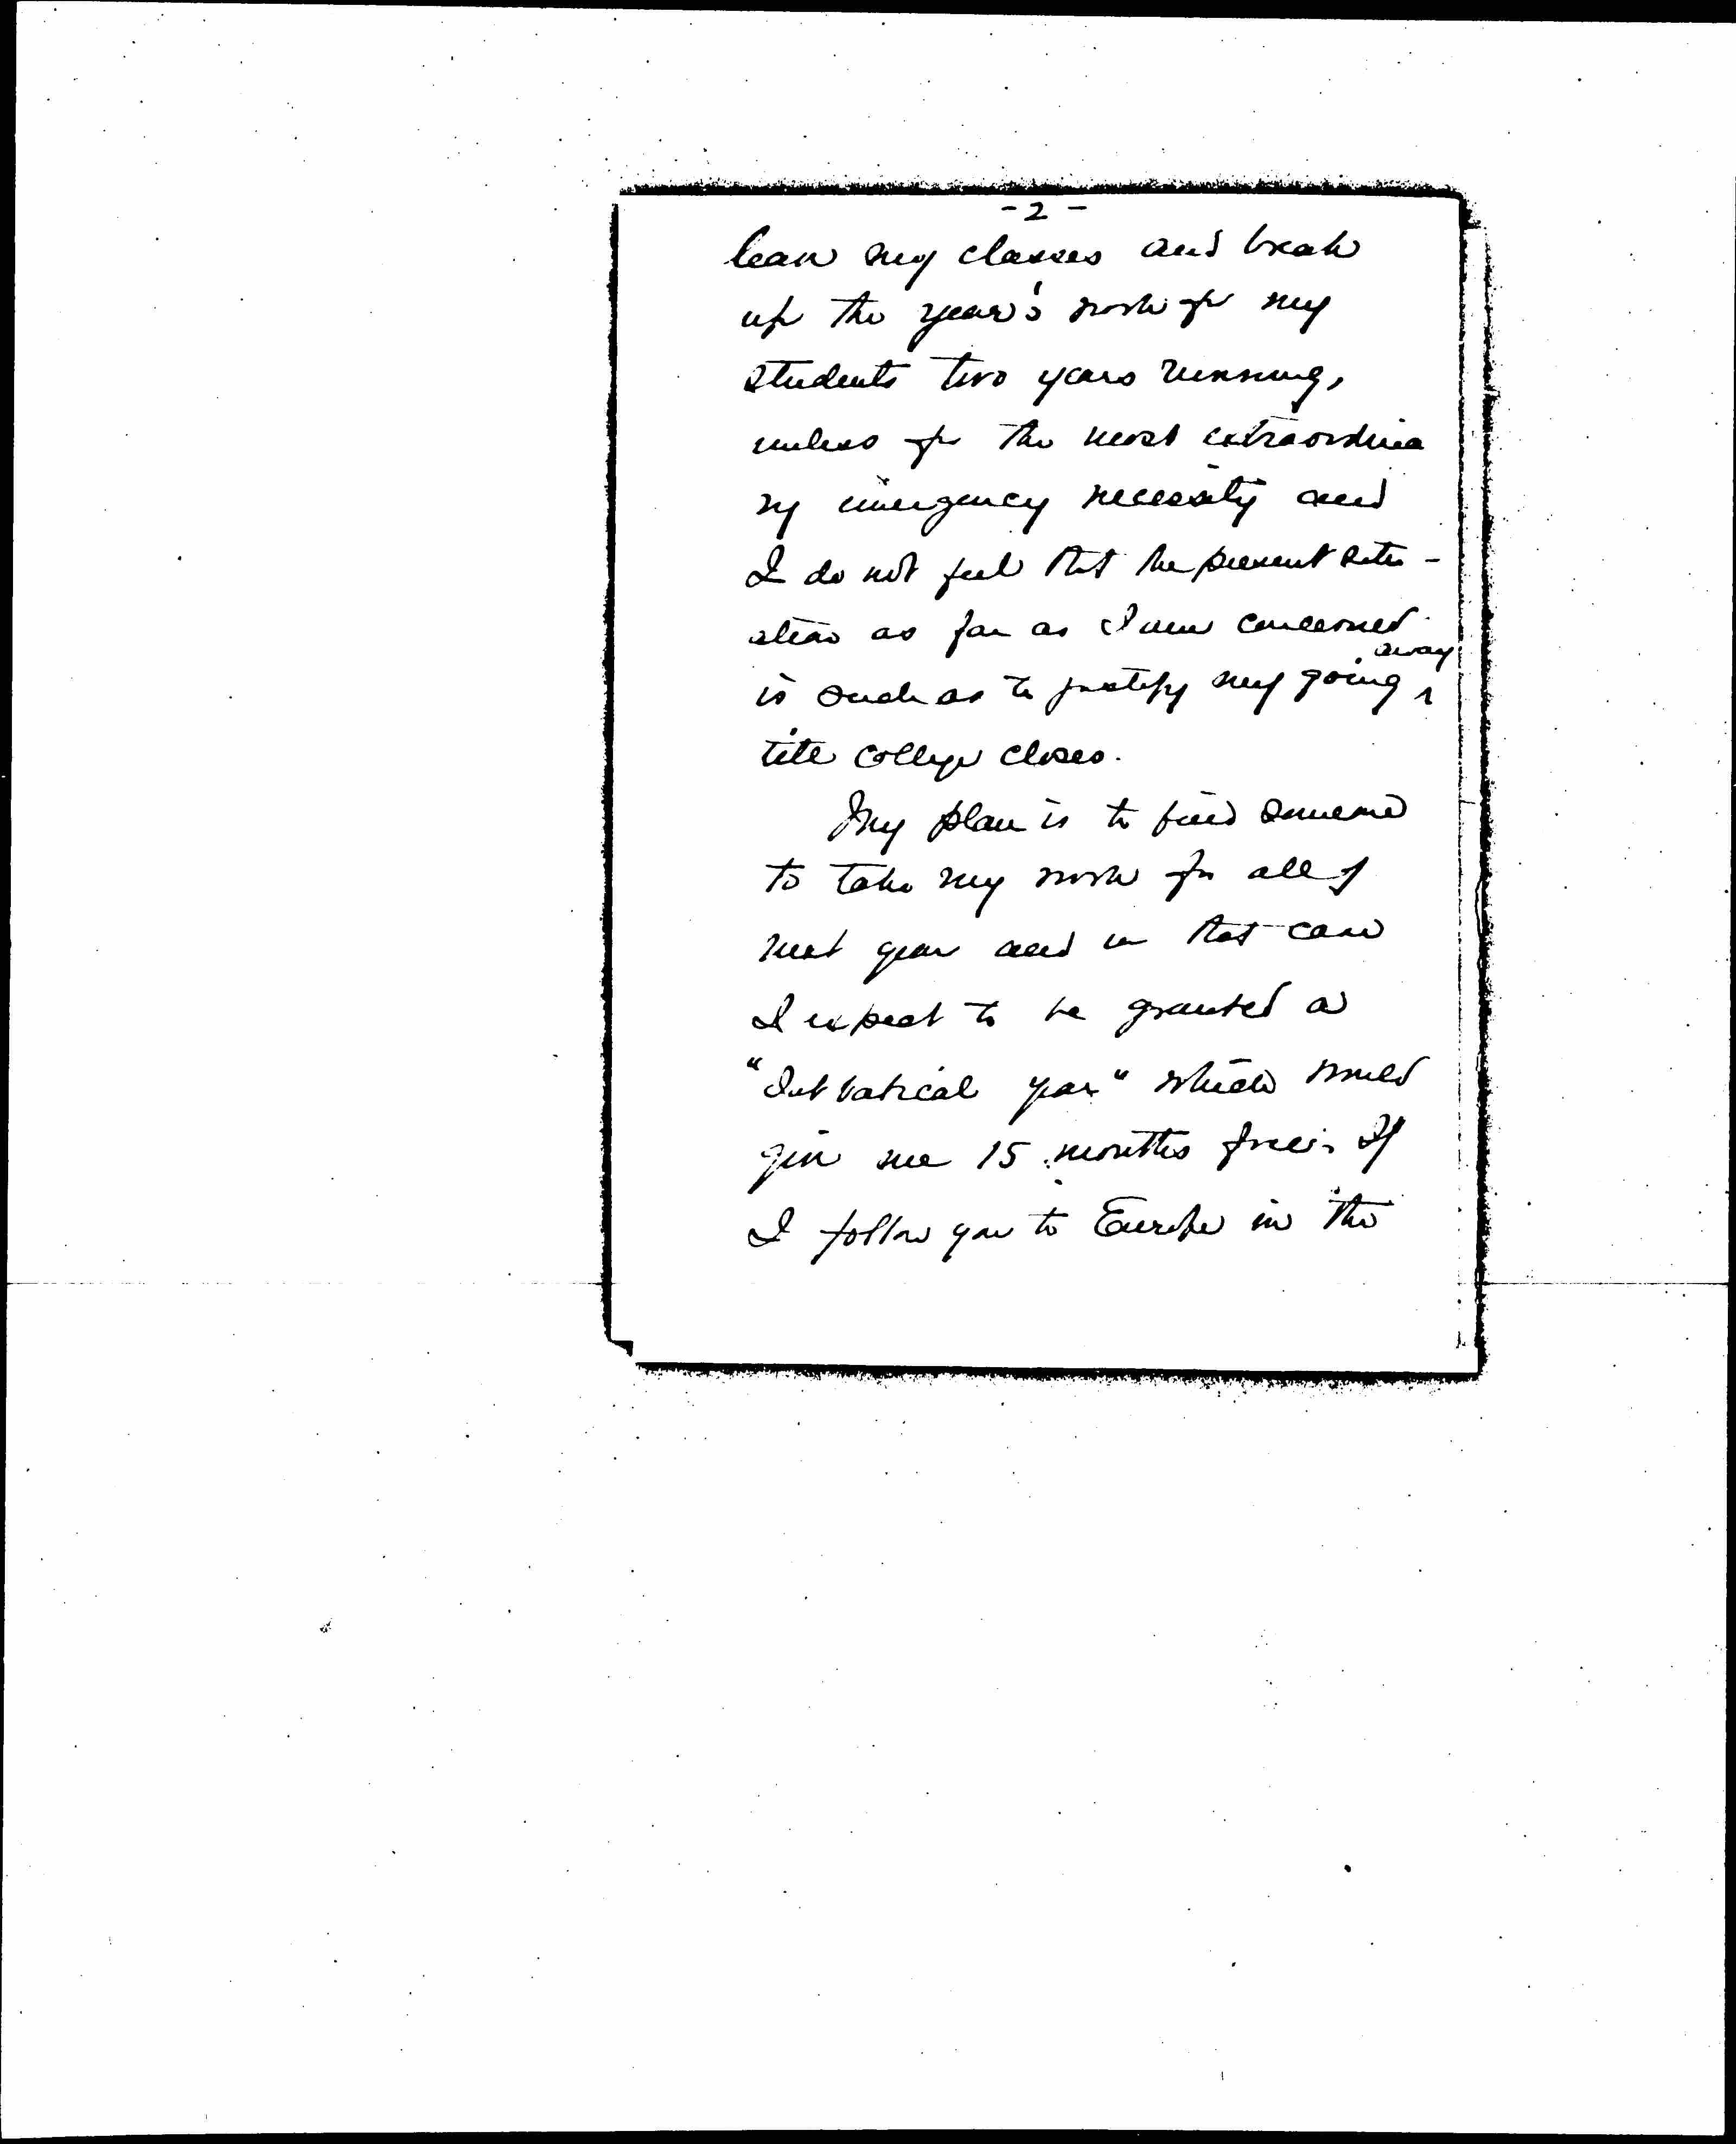 - 2 -
leave my classes and break
up the year's work for my
students two years running,
unless for the most extraordina
ry emergency necessity and
I do not feel that the present situ -
ation as far as I am concerned
is such as to justify my going away
till college closes.
My plan is to find someone
to take my work for all of
next year and in that case
I expect to be granted a
"Sabbatical year" which would
give me 15 months free. If
I follow you to Europe in the